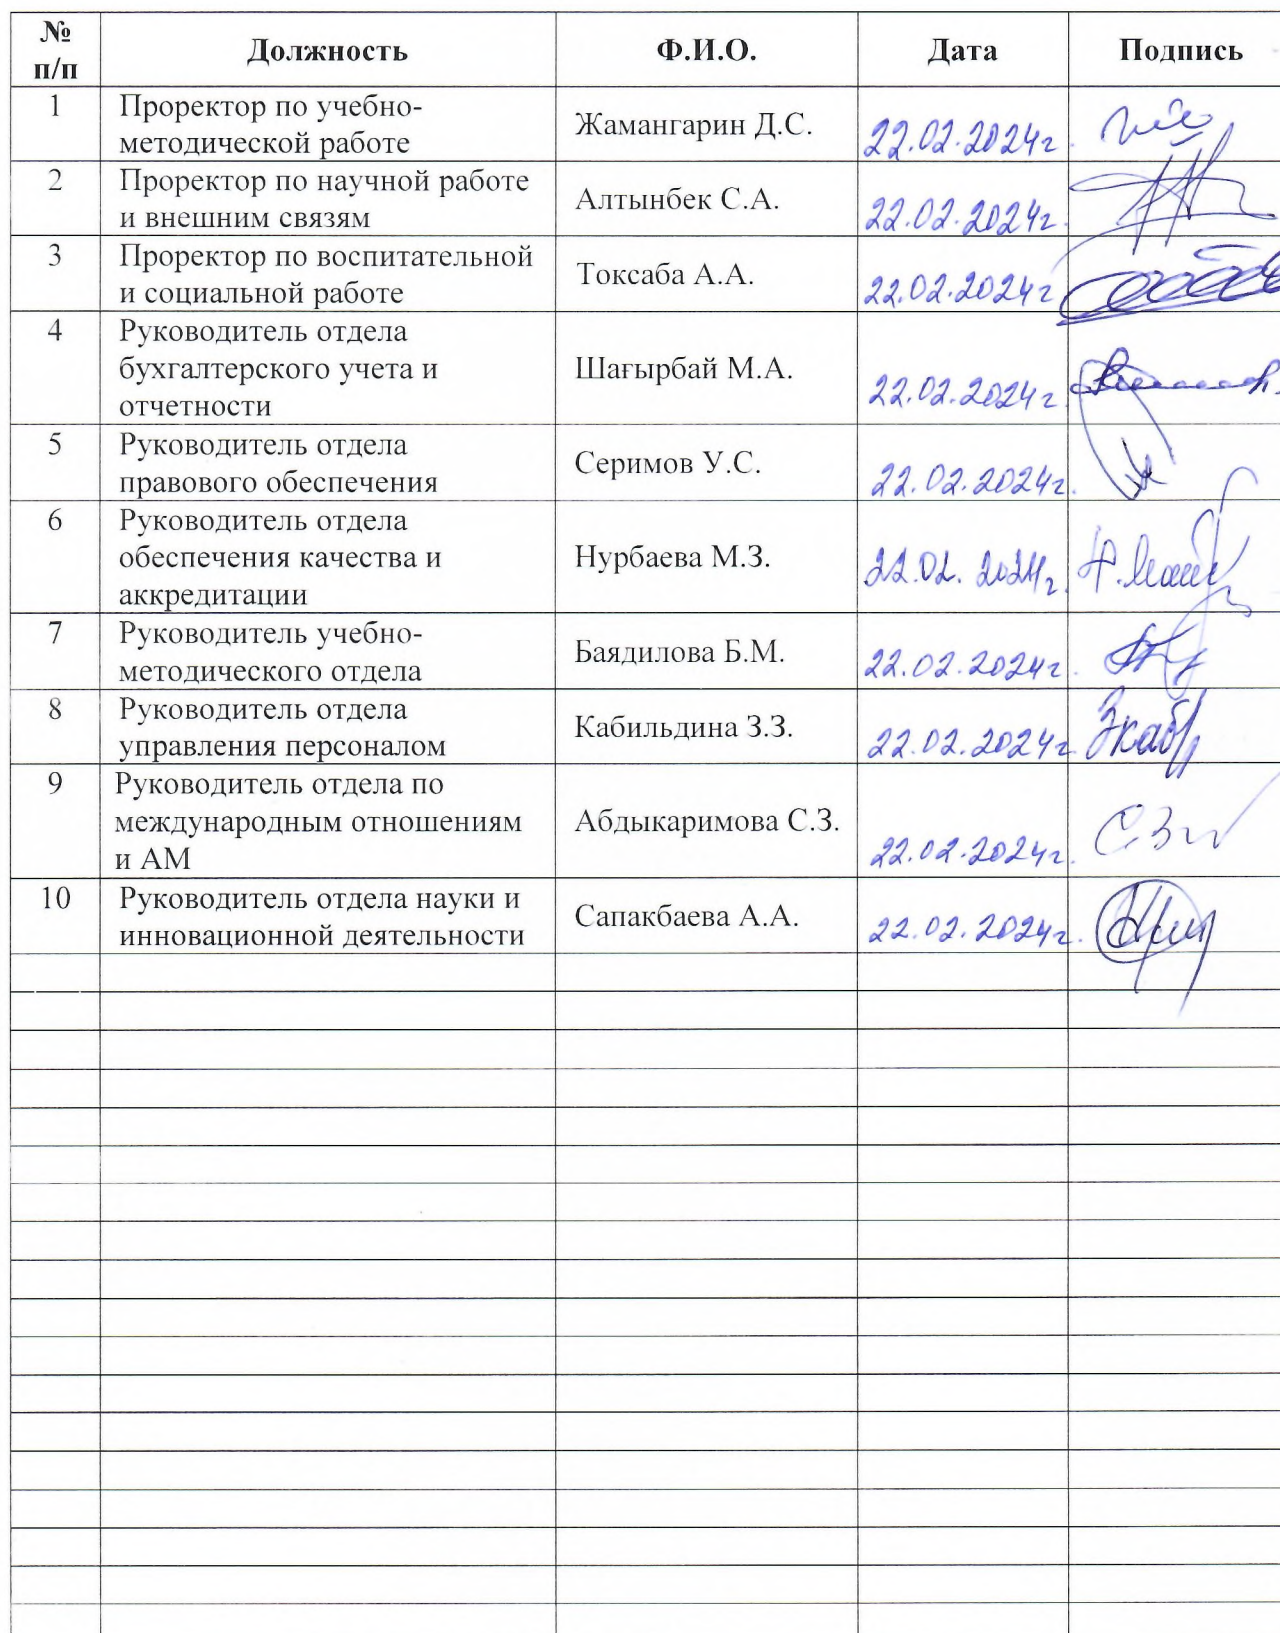 № п/п Должность Ф.И.О. Дата Подпись
1 Проректор по учебно-
методической работе Жамангарин Д.С. 22.02.2024г.
2 Проректор по научной работе
и внешним связям Алтынбек С.А. 22.02.2024г.
3 Проректор по воспитательной
и социальной работе Токсаба А.А. 22.02.2024г
4 Руководитель отдела
бухгалтерского учета и
отчетности Шағырбай М.А. 22.02.2024г.
5 Руководитель отдела
правового обеспечения Серимов У.С. 22.02.2024г.
6 Руководитель отдела
обеспечения качества и
аккредитации Нурбаева М.З. 22.02.2024г.
7 Руководитель учебно-
методического отдела Баядилова Б.М. 22.02.2024г.
8 Руководитель отдела
управления персоналом Кабильдина З.З. 22.02.2024г.
9 Руководитель отдела по
международным отношениям
и АМ Абдыкаримова С.З. 22.02.2024г.
10 Руководитель отдела науки и
инновационной деятельности Сапакбаева А.А. 22.02.2024г.